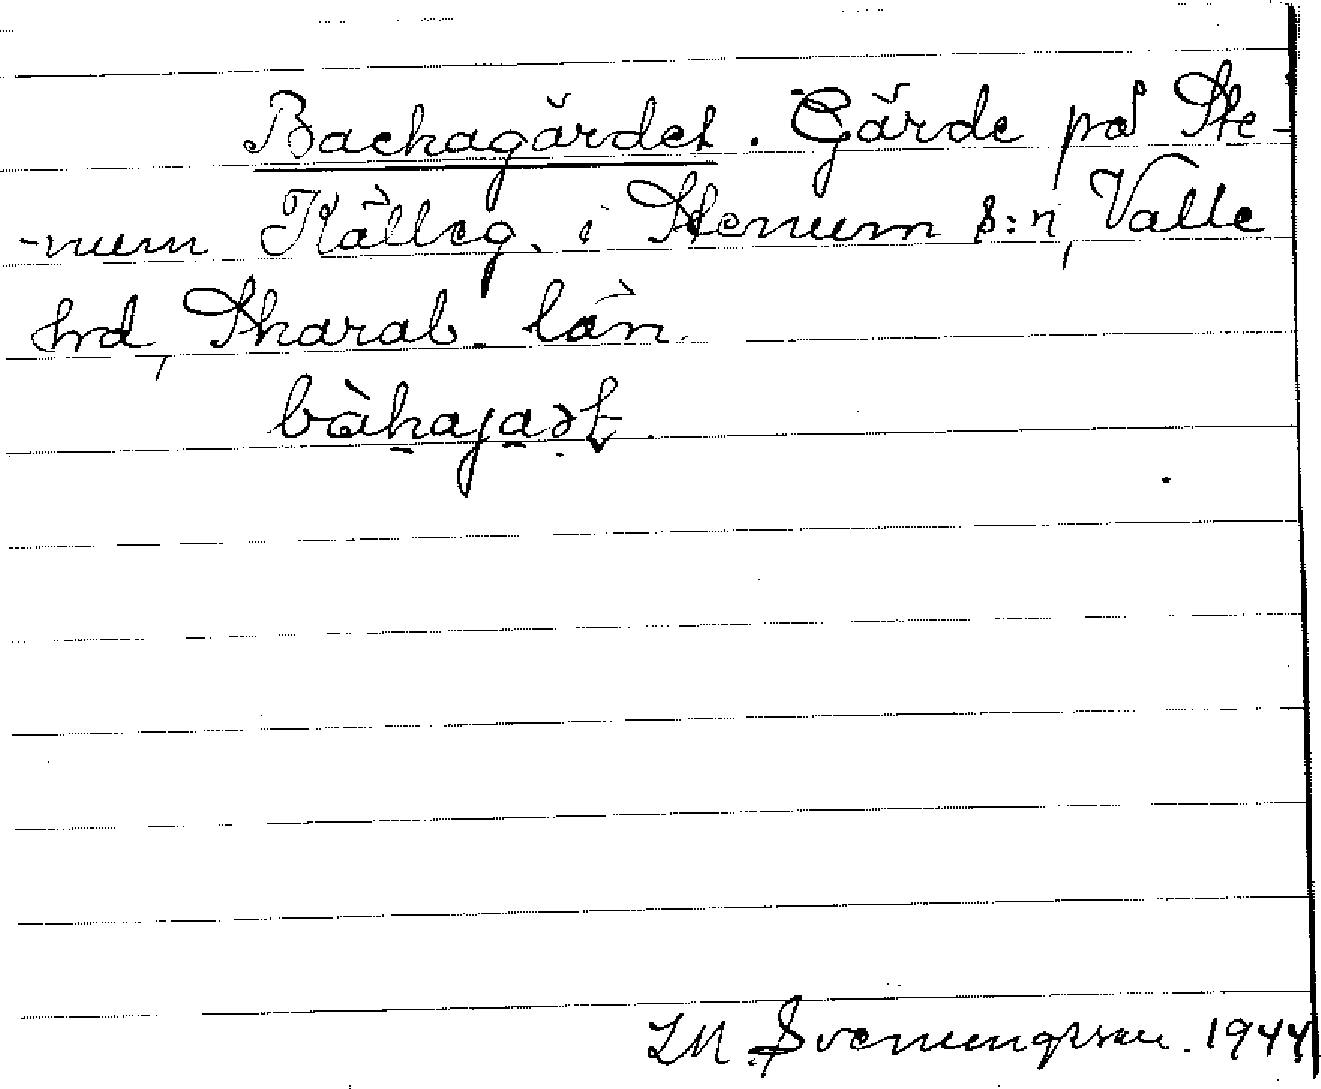 Backagärdet. Gärde på Ste-
-num Källeg. i Stenum s:n, Valle
hrd, Skarab. län.
bàkajaət
Svenungsson. 1944